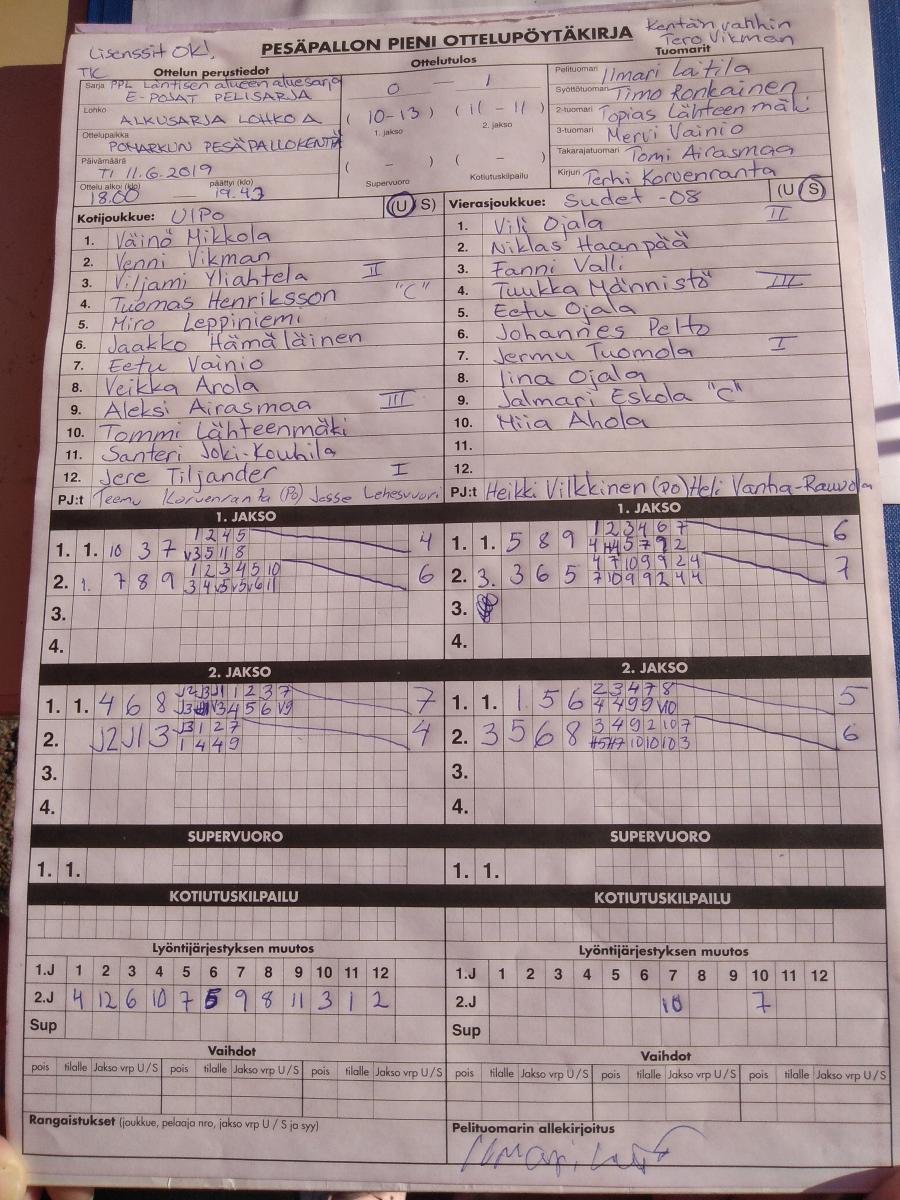 Lisenssit OK!
PESÄPALLON PIENI OTTELUPÖYTÄKIRJA
Kentän vanhin
Tero Vikman
Ottelun perustiedot
Sarja PPL Läntisen alueen aluesarja
E-POJAT PELISARJA
Lohko ALKUSARJA LOHKO A
Ottelupaikka
POMARKUN PESÄPALLOKENTTÄ
Päivämäärä
TI 11.6.2019
Ottelu alkoi (klo) päättyi (klo)
18.00 19.47
Ottelutulos
0 — 1
( 10-13 ) ( 11 - 11 )
1. jakso 2. jakso
( - ) ( - )
Supervuoro Kotiutuskilpailu
Tuomarit
Pelituomari Ilmari Laitila
Syöttötuomari Timo Ronkainen
2-tuomari Topias Lähteenmäki
3-tuomari Mervi Vainio
Takarajatuomari Tomi Airasmaa
Kirjuri Terhi Korvenranta
Kotijoukkue: UlPo (U S)
1. Väinö Mikkola
2. Venni Vikman
3. Viljami Yliahtela II
4. Tuomas Henriksson "C"
5. Miro Leppiniemi
6. Jaakko Hämäläinen
7. Eetu Vainio
8. Veikka Arola
9. Aleksi Airasmaa III
10. Tommi Lähteenmäki
11. Santeri Joki-Kouhila
12. Jere Tiljander I
PJ:t Teemu Korvenranta (Po) Jesse Lehesvuori
Vierasjoukkue: Sudet -08 (U S)
1. Vili Ojala II
2. Niklas Haanpää
3. Fanni Valli
4. Tuukka Männistö III
5. Eetu Ojala
6. Johannes Pelto
7. Jermu Tuomola I
8. Iina Ojala
9. Jalmari Eskola "C"
10. Miia Ahola
11.
12.
PJ:t Heikki Vilkkinen (PO) Heli Vanha-Rauvola
1. JAKSO
1. 1. 10 3 7 1 2 4 5 4
v3 5 11 8
2. 1. 7 8 9 1 2 3 4 5 10 6
3.
4.
1. JAKSO
1. 1. 5 8 9 1 2 3 4 6 7 6
2. 3. 3 6 5 4 7 10 9 9 2 4 7
7 10 9 9 2 4 4
3.
4.
2. JAKSO
1. 1. 4 6 8 J2 J3 J1 1 2 3 7 7
2. J2 J1 3 J3 1 2 7 4
1 4 4 9
3.
4.
2. JAKSO
1. 1. 1 5 6 2 3 4 7 8 5
4 4 9 9 v10
2. 3 5 6 8 3 4 9 2 10 7 6
3.
4.
SUPERVUORO
1. 1.
SUPERVUORO
1. 1.
KOTIUTUSKILPAILU
KOTIUTUSKILPAILU
Lyöntijärjestyksen muutos
1.J 1 2 3 4 5 6 7 8 9 10 11 12
2.J 4 12 6 10 7 5 9 8 11 3 1 2
Sup
Lyöntijärjestyksen muutos
1.J 1 2 3 4 5 6 7 8 9 10 11 12
2.J 10 7
Sup
Vaihdot
pois tilalle Jakso vrp U/S pois tilalle Jakso vrp U/S pois tilalle Jakso vrp U/S
Vaihdot
pois tilalle Jakso vrp U/S pois tilalle Jakso vrp U/S pois tilalle Jakso vrp U/S
Rangaistukset (joukkue, pelaaja nro, jakso vrp U / S ja syy)
Pelituomarin allekirjoitus